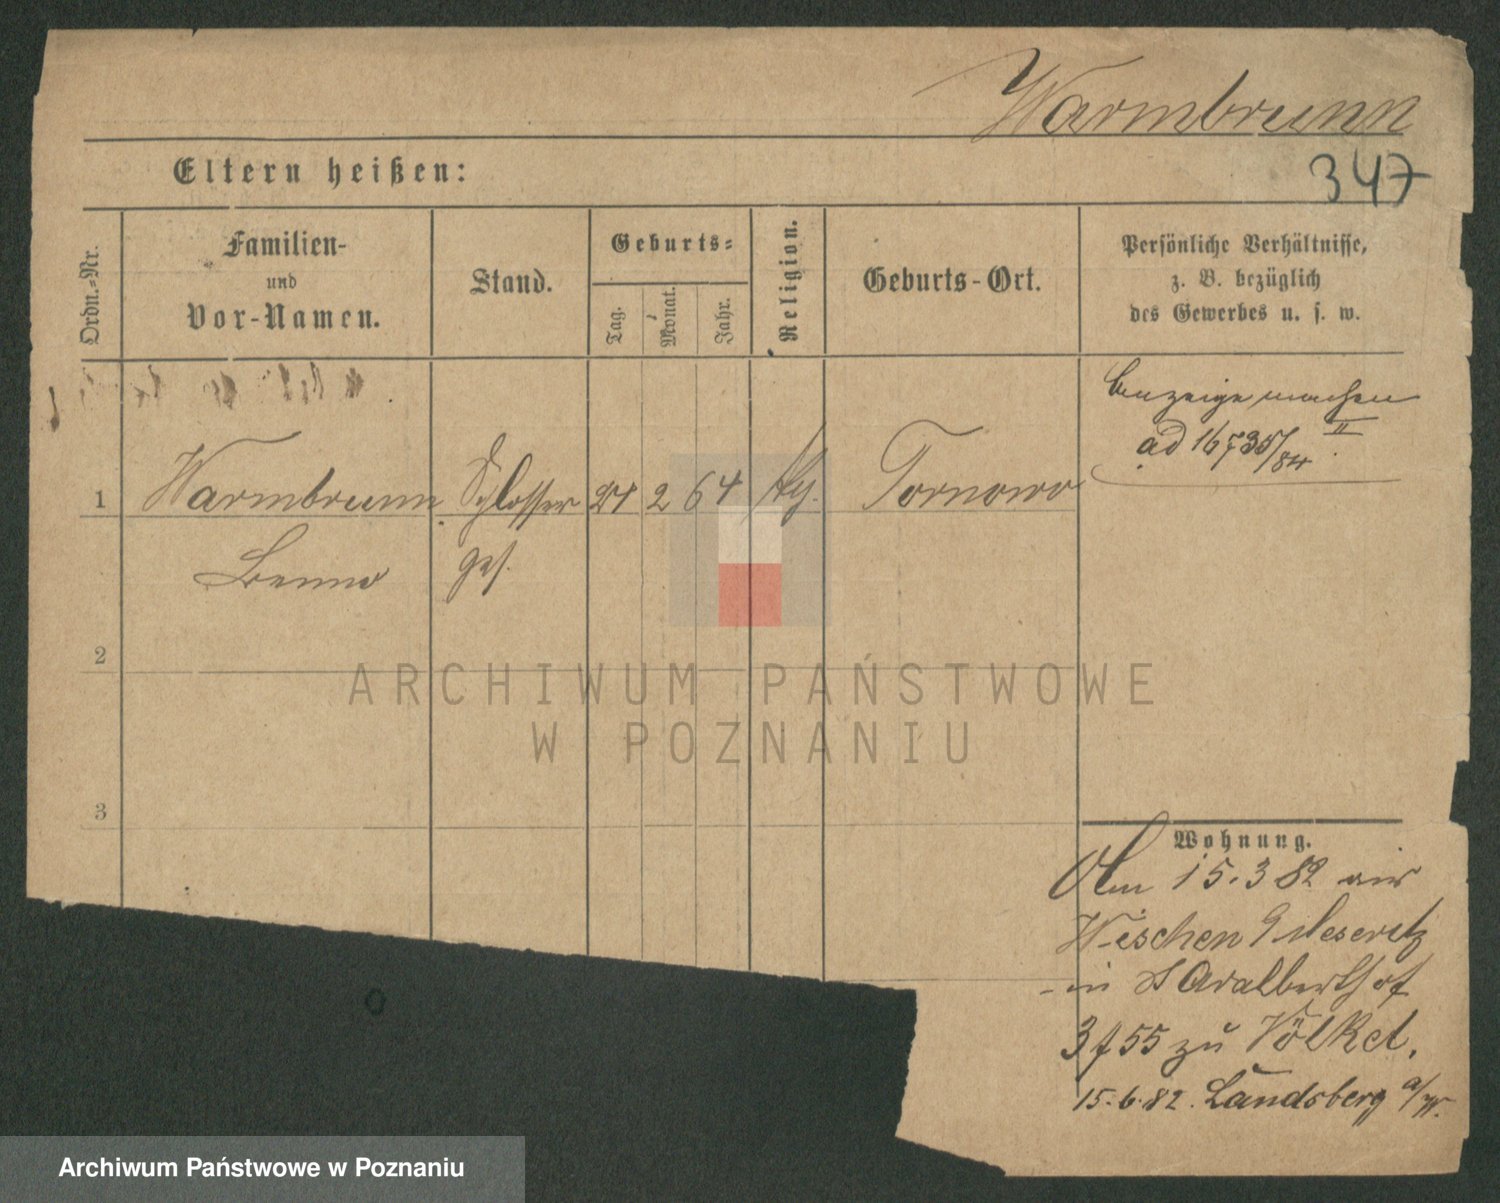 Warmbrunn
347
Eltern heißen:
Ordn.-Nr.
Familien-
und
Vor-Namen.
Stand.
Geburts-
Tag.
Monat.
Jahr.
Religion.
Geburts-Ort.
Persönliche Verhältnisse,
z. B. bezüglich
des Gewerbes u. s. w.
Anzeige machen
ad 16735/84 II
1 Warmbrunn Schlosser 21 2 64 Tornowo
Benno ges.
2
3
Wohnung.
Am 15.3 82 aus
Meseritz
in St Adalberthof
3 f 55 zu Völkel.
15.6.82. Landsberg a/W.
ARCHIWUM PAŃSTWOWE
W POZNANIU
Archiwum Państwowe w Poznaniu